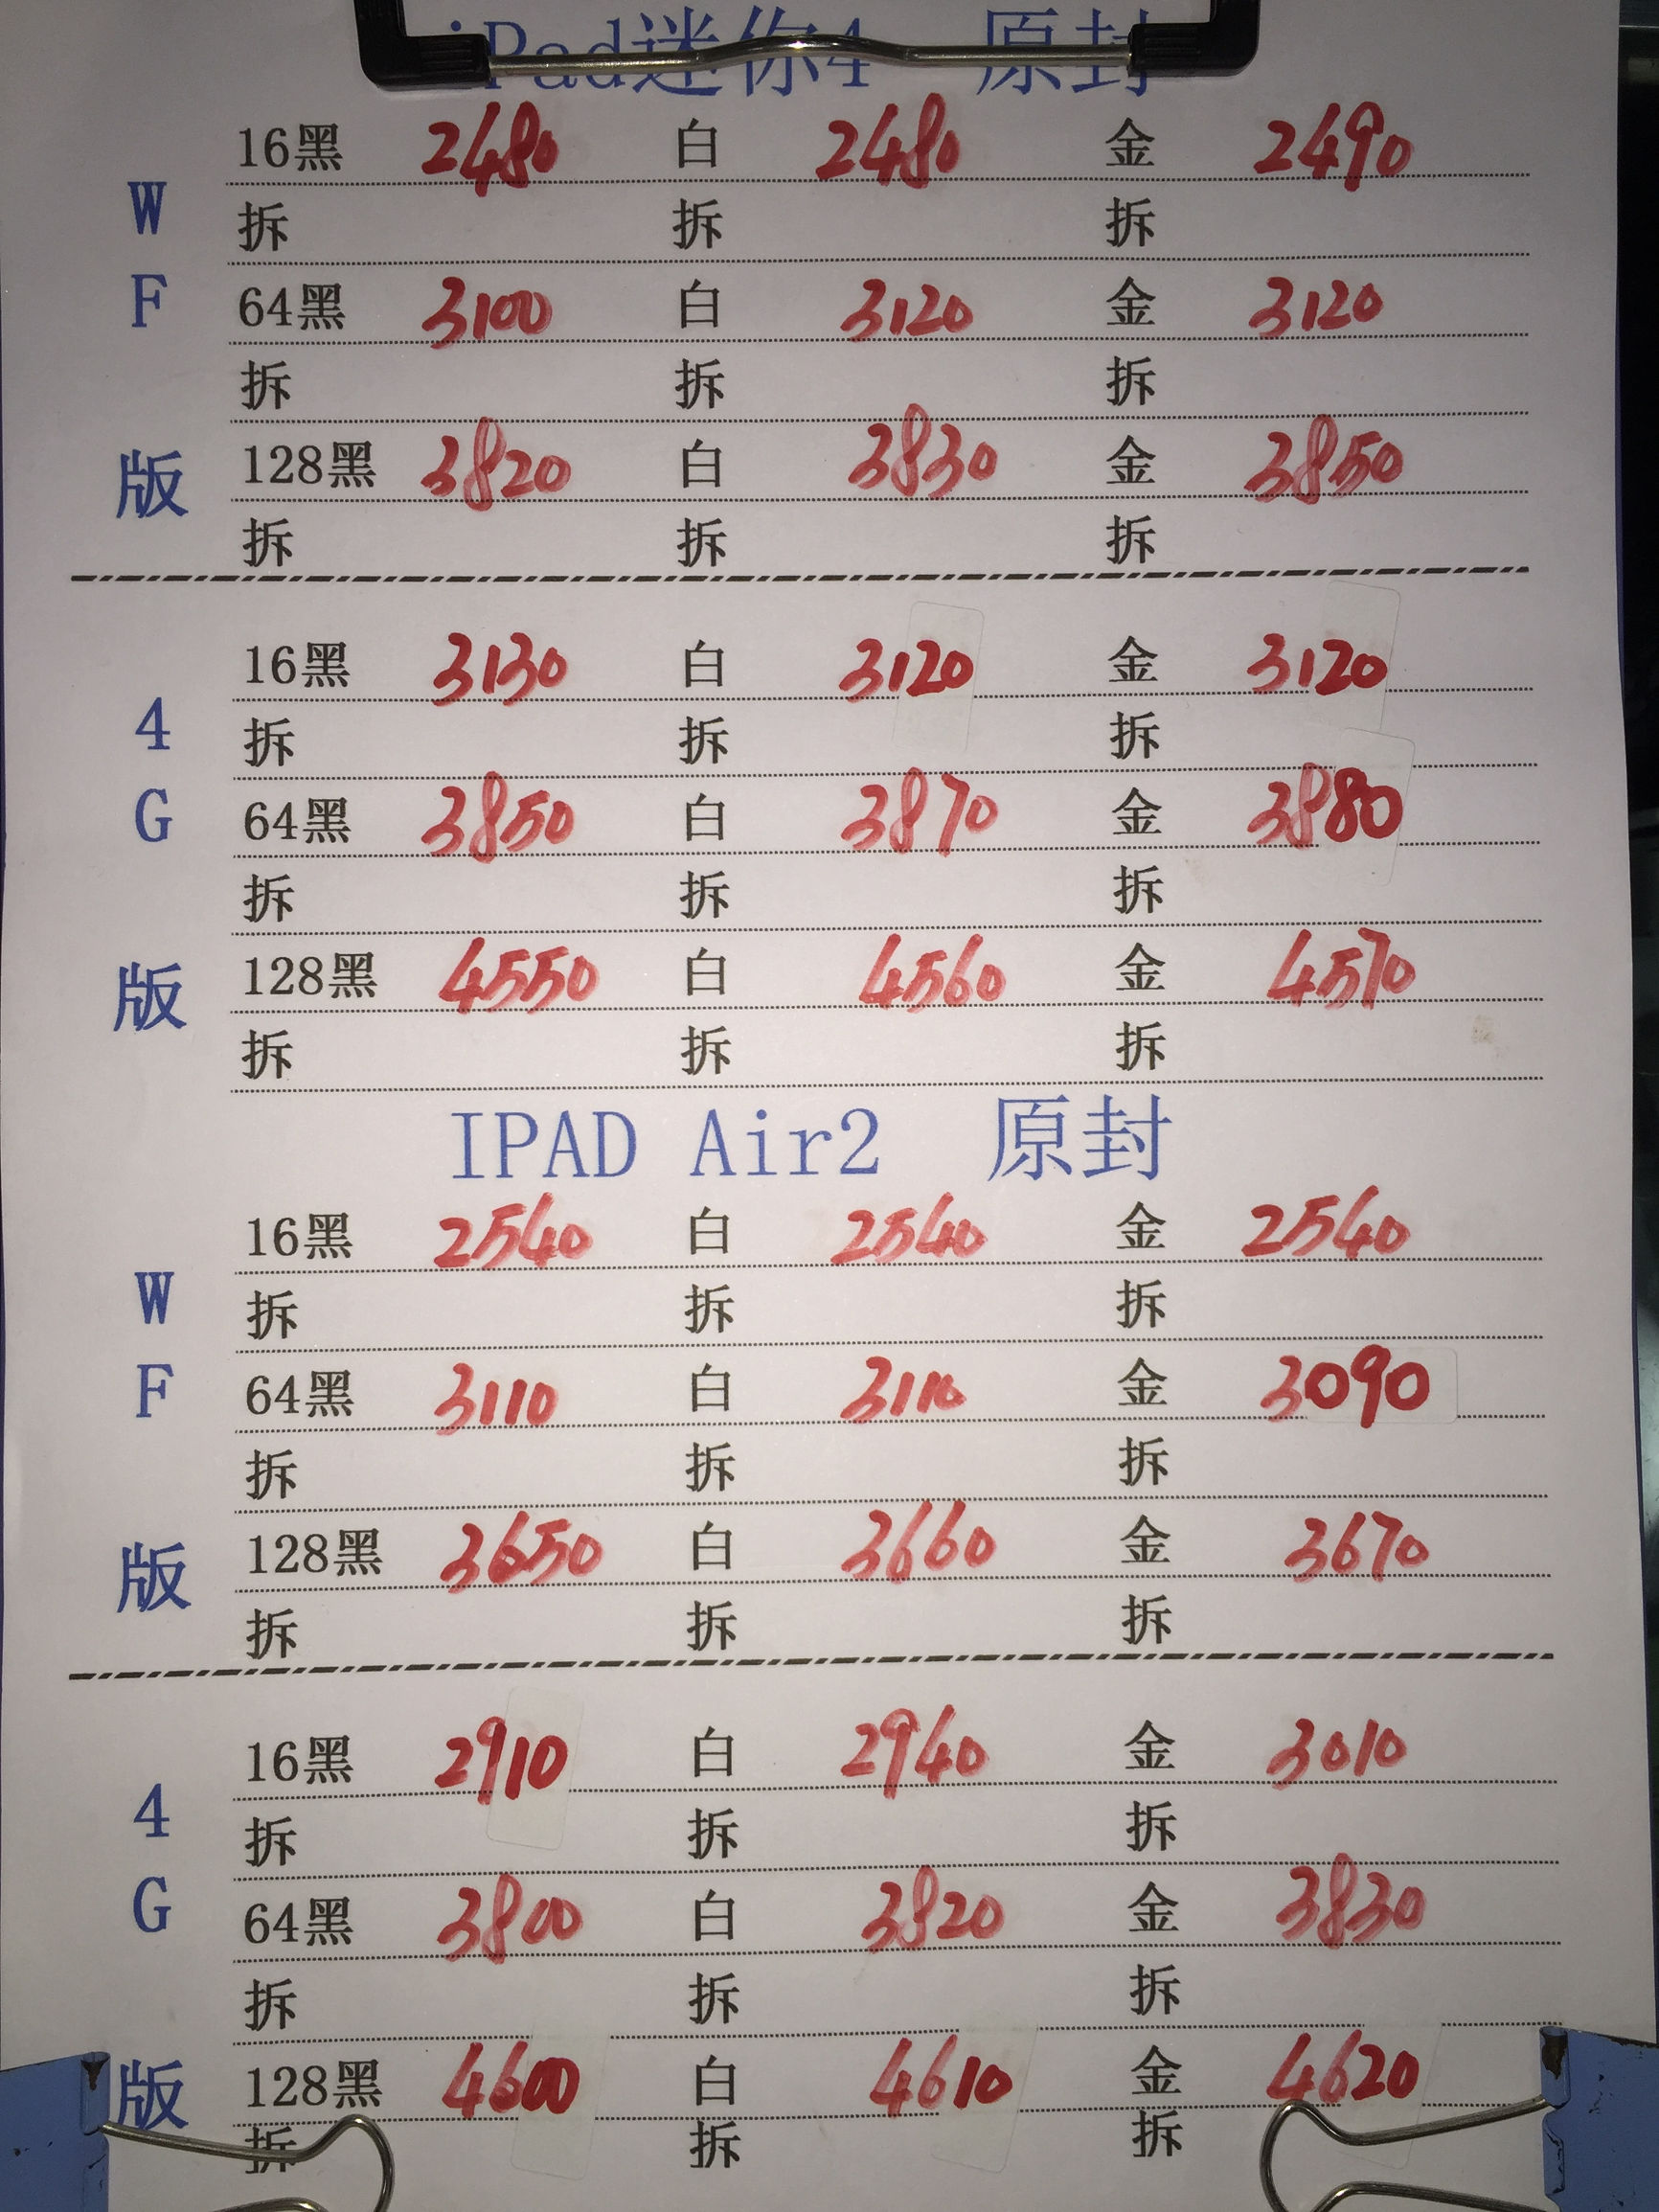 iPad迷你4 原封
16黑 2480 白 2480 金 2490
W
拆 拆 拆
F
64黑 3100 白 3120 金 3120
拆 拆 拆
版
128黑 3820 白 3830 金 3850
拆 拆 拆
16黑 3130 白 3120 金 3120
4
拆 拆 拆
G
64黑 3850 白 3870 金 3880
拆 拆 拆
版
128黑 4550 白 4560 金 4570
拆 拆 拆
IPAD Air2 原封
16黑 2540 白 2540 金 2540
W
拆 拆 拆
F
64黑 3110 白 3110 金 3090
拆 拆 拆
版
128黑 3650 白 3660 金 3670
拆 拆 拆
16黑 2910 白 2940 金 3010
4
拆 拆 拆
G
64黑 3800 白 3820 金 3830
拆 拆 拆
版
128黑 4600 白 4610 金 4620
拆 拆 拆